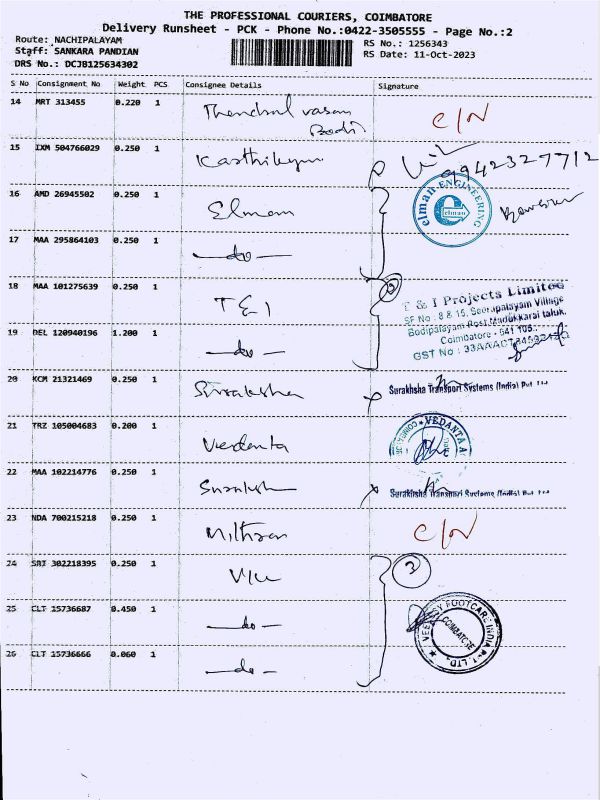 THE PROFESSIONAL COURIERS, COIMBATORE
Delivery Runsheet - PCK - Phone No.:0422-3505555 - Page No.:2
Route: NACHIPALAYAM
RS No.: 1256343
Staff: SANKARA PANDIAN
RS Date: 11-Oct-2023
DRS No.: DCJB125634302
S No Consignment No Weight PCS Consignee Details Signature
14 MRT 313455 0.220 1 Thendral vasam
Bodi
C/N
15 IXM 504766029 0.250 1 Karthikeyan
9942327712
16 AMD 26945502 0.250 1 Elman
elman ENGINEERING
elman
17 MAA 295864103 0.250 1 —do—
18 MAA 101275639 0.250 1 T & I
2
T & I Projects Limited
SF No : 8 & 15, Seerapalayam Village
Bodipalayam Post, Madukkarai taluk,
Coimbatore - 641 105.
GST No :
19 DEL 120940196 1.200 1 —do—
20 KCM 21321469 0.250 1 Suraksha
Surakhsha Transport Systems (India) Pvt. Ltd
21 TRZ 105004683 0.200 1 Vedanta
VEDANTA
22 MAA 102214776 0.250 1 Suraksh
Surakhsha Transport Systems (India) Pvt. Ltd
23 NDA 700215218 0.250 1 Mithran
C/N
24 SRT 302218395 0.250 1 VKC
3
25 CLT 15736687 0.450 1 —do—
FOOTCARE INDIA PVT. LTD.
COIMBATORE
26 CLT 15736666 0.060 1 —do—